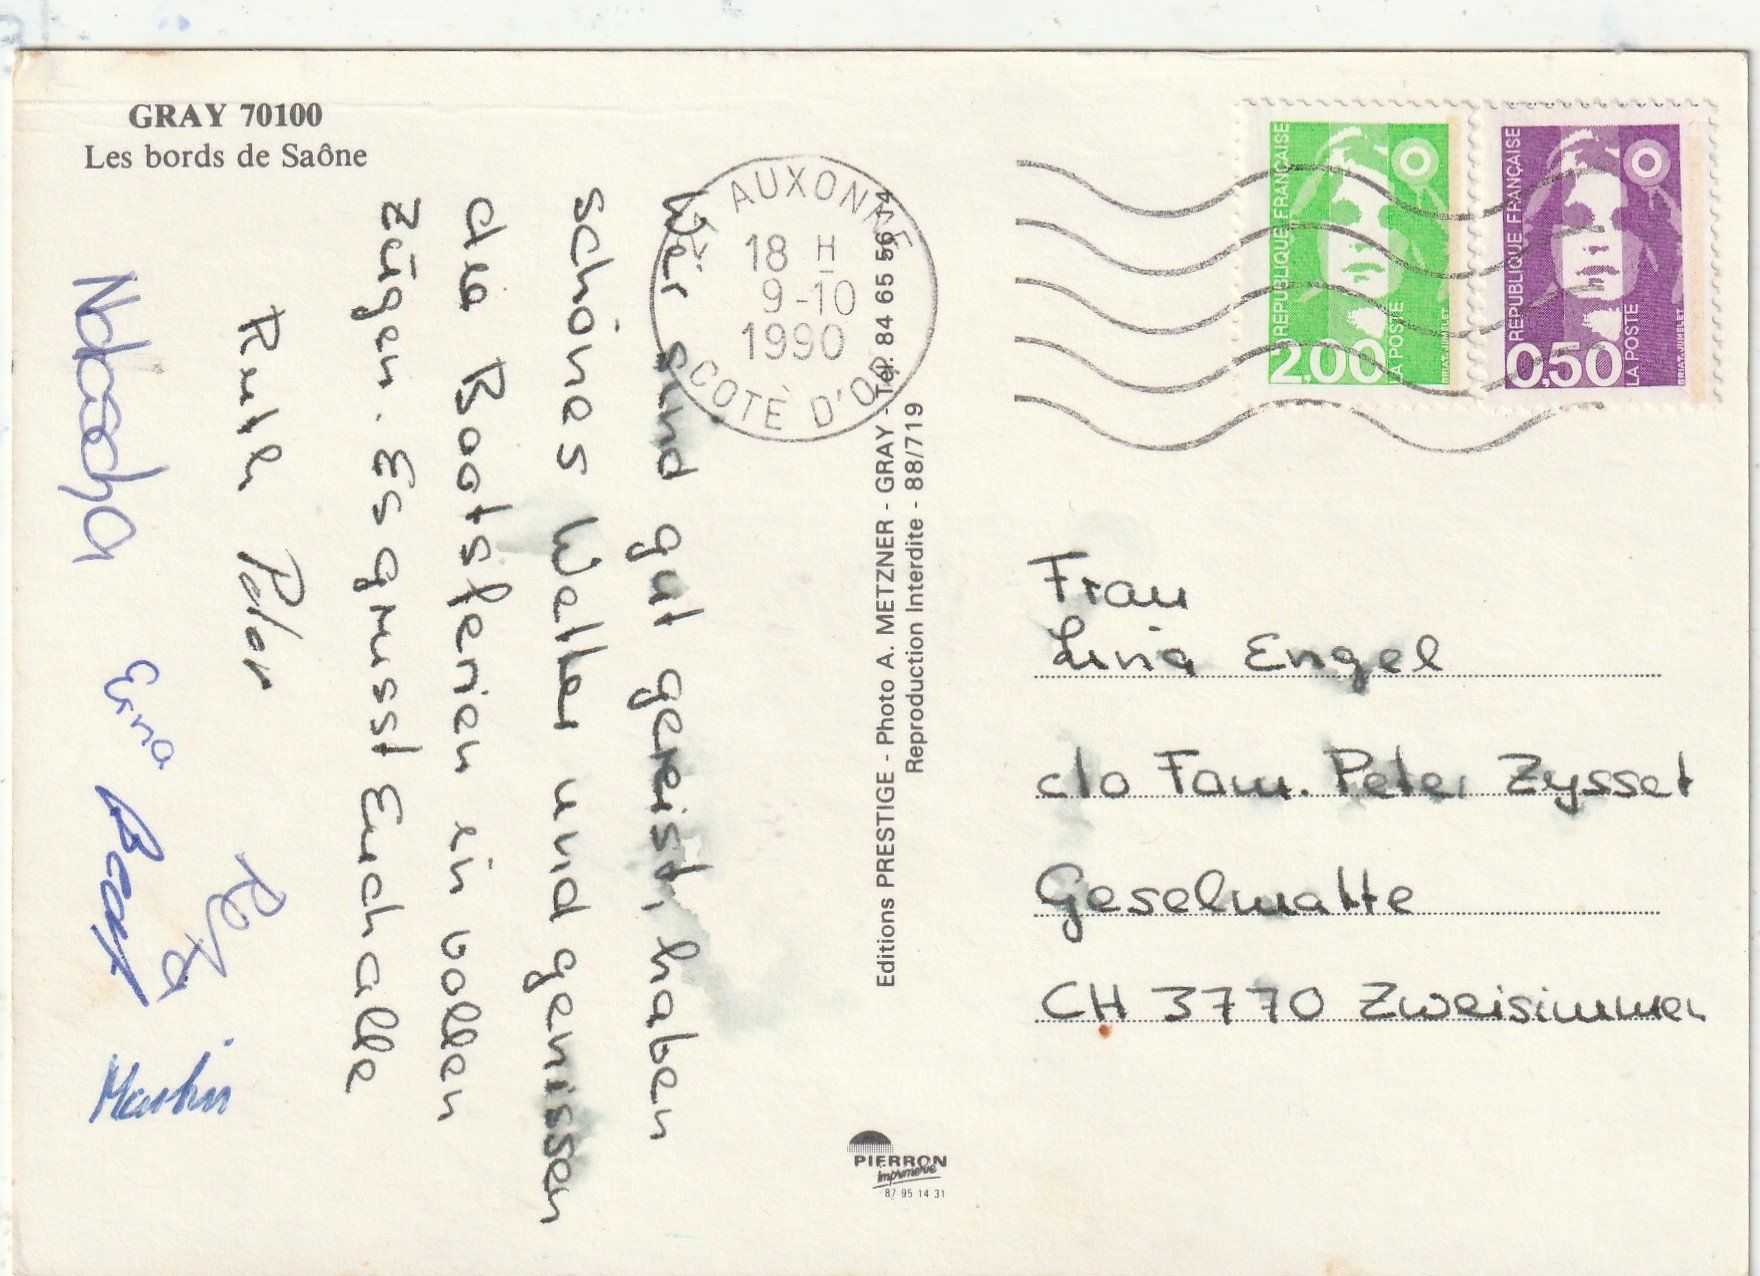 GRAY 70100
Les bords de Saône
Wir sind gut gereist, haben
schönes Wetter und genissen
die Bootsferien in vollen
Zügen. Es grüsst Euch alle
Ruth Peter
Natascha
Erna
Beat
Reto
Martin
AUXONNE
18 H
9-10
1990
COTE D'OR
Editions PRESTIGE - Photo A. METZNER - GRAY - Tél. 84 65 56 14
Reproduction Interdite - 88/719
PIERRON
Imprimerie
87 95 14 31
REPUBLIQUE FRANÇAISE
2,00
LA POSTE
BRIAT-JUMELET
REPUBLIQUE FRANÇAISE
0,50
LA POSTE
BRIAT-JUMELET
Frau
Lina Engel
c/o Fam. Peter Zysset
Geselmatte
CH 3770 Zweisimmen